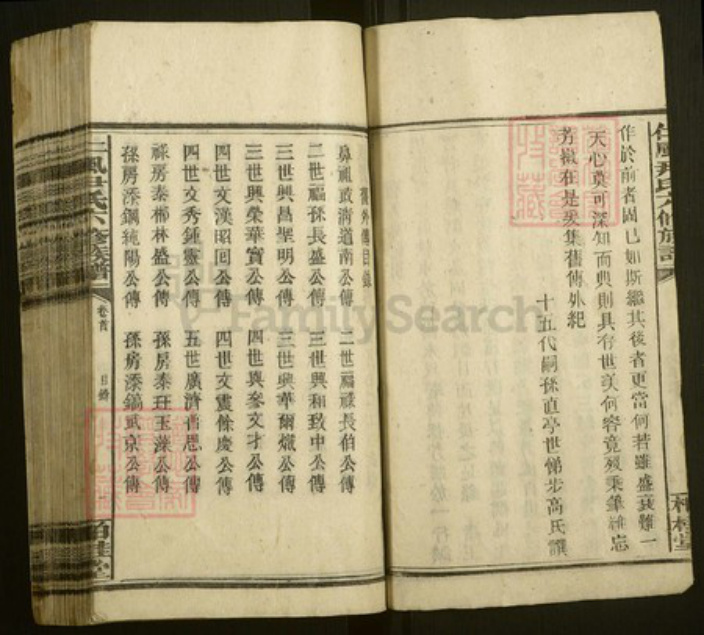 作於前者固已如斯繼其後者更當何若雖盛衰難一
天心莫可深知而典則具有世美何容竟殁秉筆維忘
芳徽在是爰集舊傳外紀
十五代嗣孫直亭世悌步高氏譔
桂堂
舊外傳目錄
鼻祖政濟道南公傳 二世福祿長伯公傳
二世福孫長盛公傳 三世興和致中公傳
三世興昌聖明公傳 三世興華爾熾公傳
三世興榮華實公傳 四世與參文才公傳
四世文漢昭回公傳 四世文震餘慶公傳
四世文秀鍾靈公傳 五世廣濟睿思公傳
祿房泰郴林盛公傳 孫房泰玨玉藻公傳
孫房添鋼純陽公傳 孫房添鎬武京公傳
鳳尹氏六修族譜
卷首
目錄
桂堂
FamilySearch